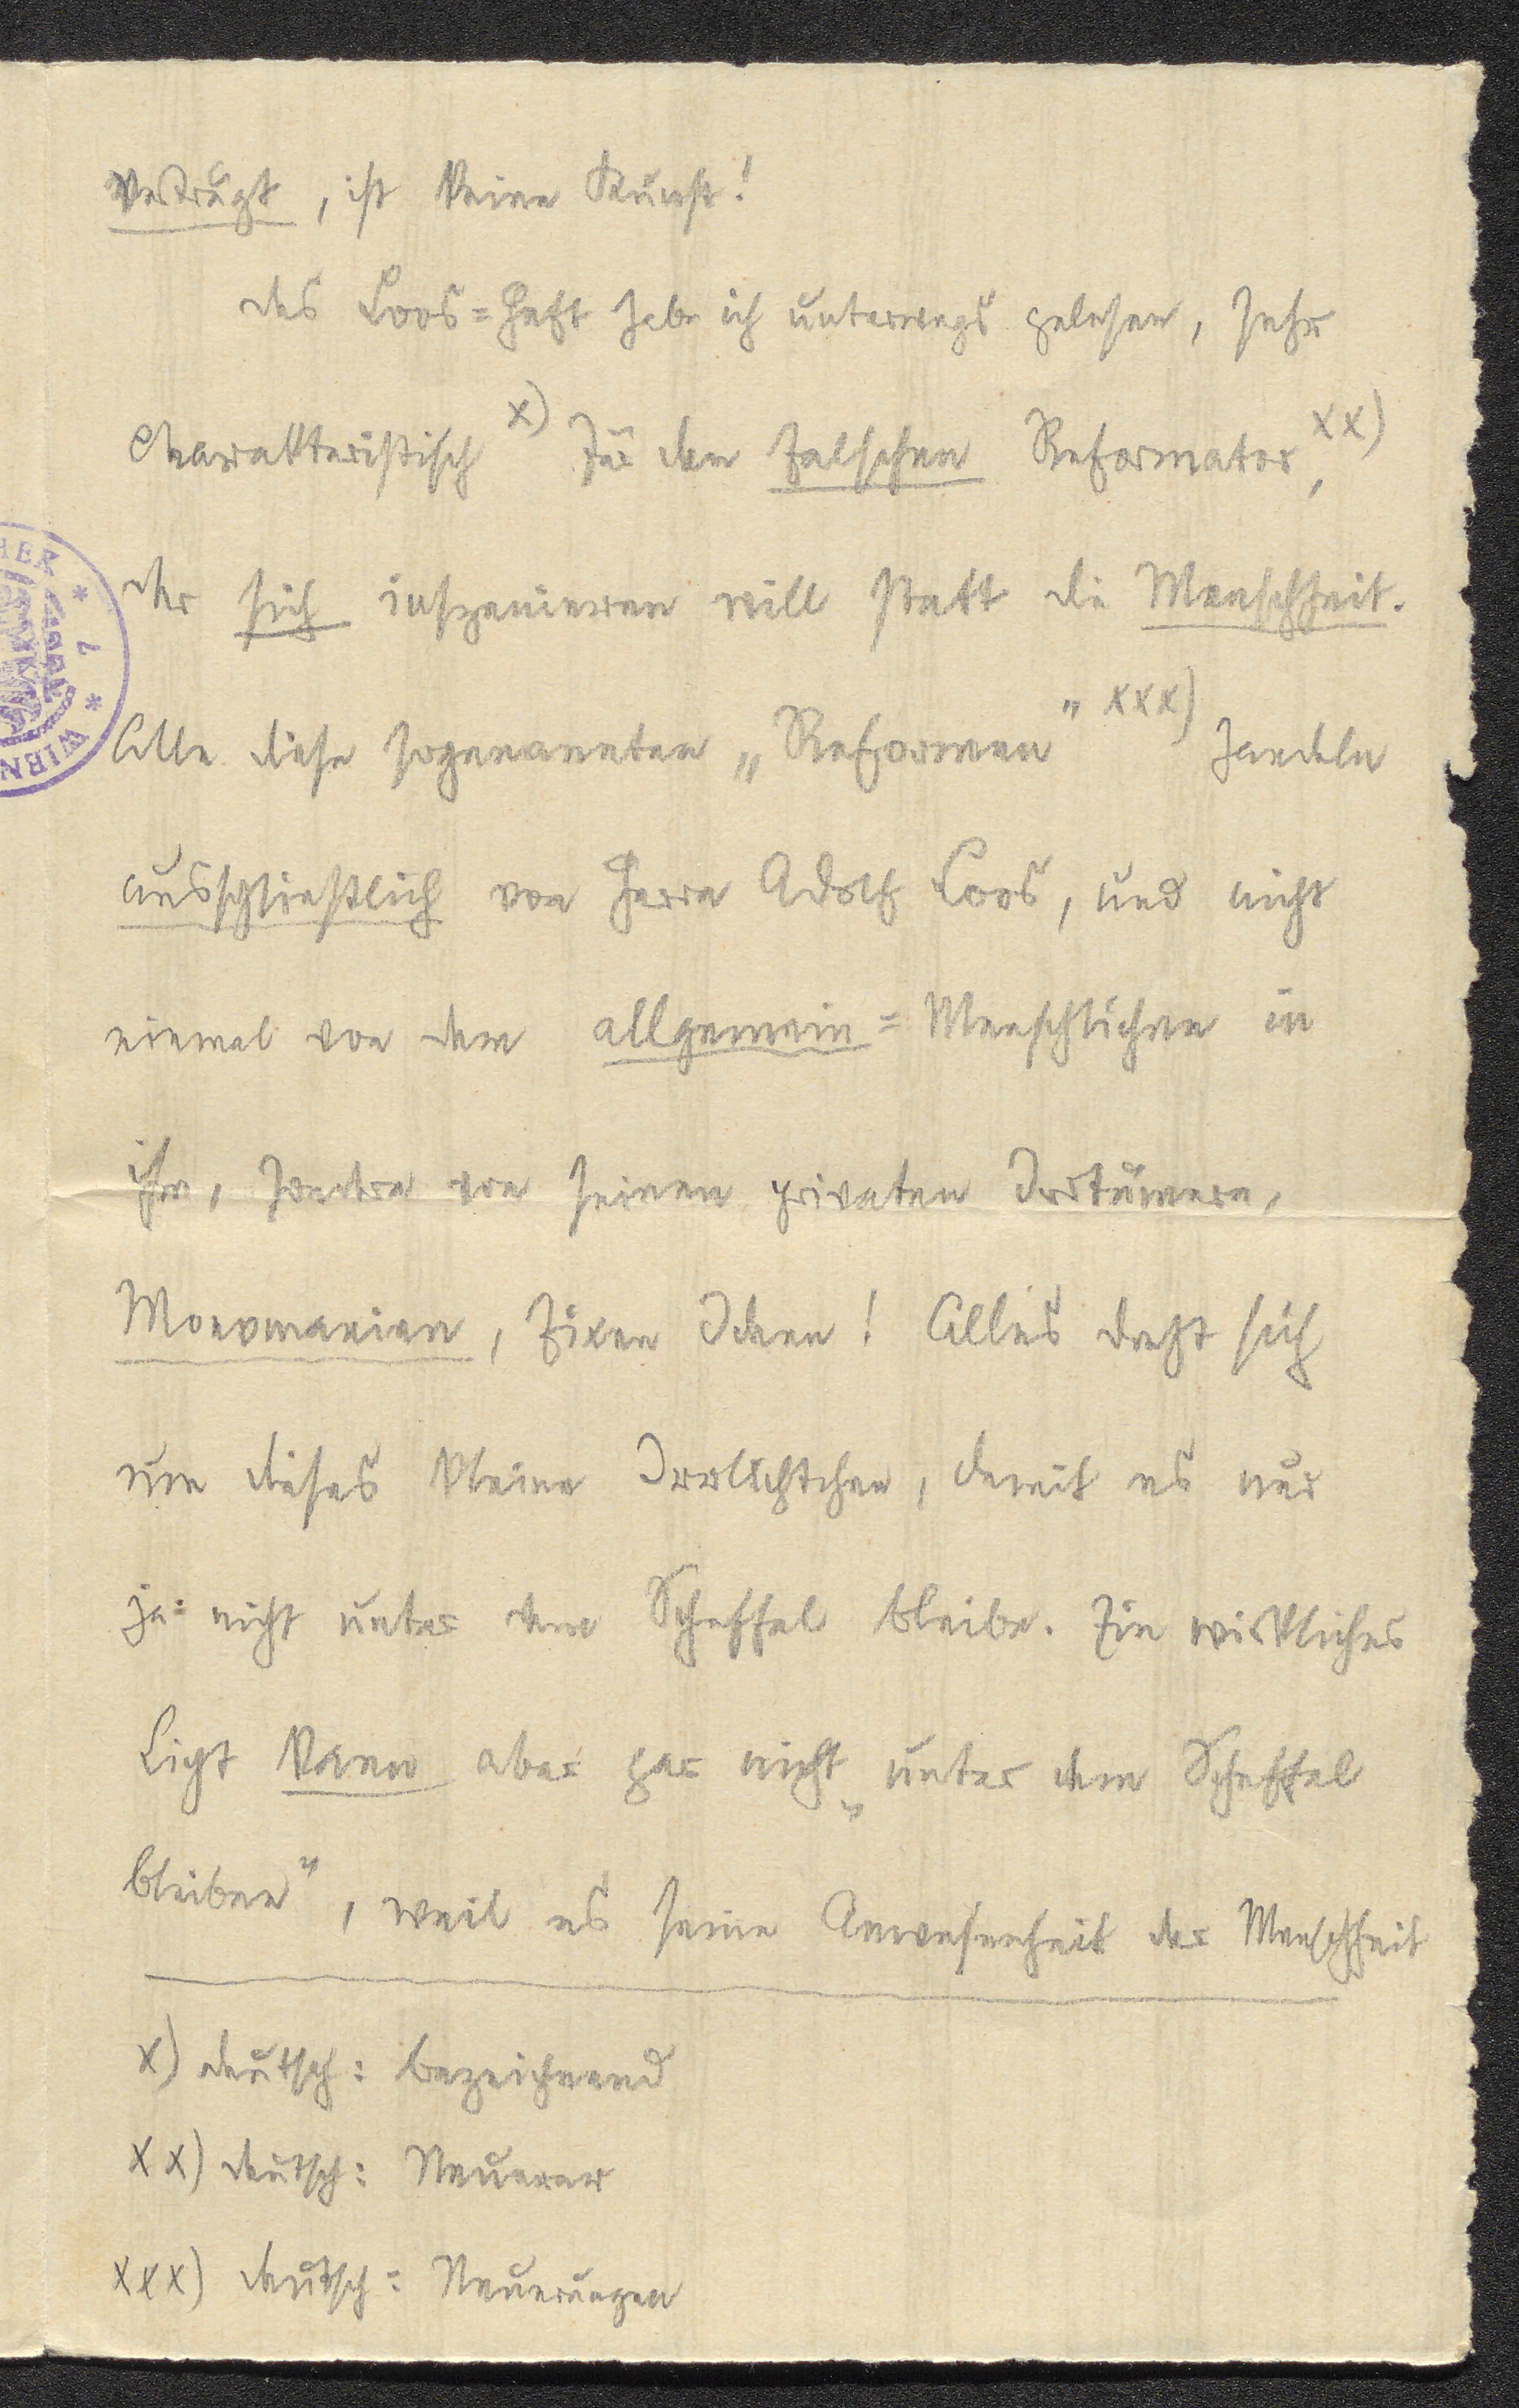 verträgt, ist keine Kunst!
das Loos=Heft habe ich unterwegs gelesen, sehr
charakteristisch x) für den falschen Reformator, xx)
der sich inszenieren will statt die Menschheit.
Alle diese sogenannten „Reformen" xxx) handeln
ausschließlich von Herrn Adolf Loos, und nicht
einmal von dem allgemein=Menschlichen in
ihm, sondern von seinen privaten Irrtümern,
Monomanien, fixen Ideen! Alles dreht sich
um dieses kleine Irrlichtchen, damit es nur
ja nicht unter dem Scheffel bleibe. Ein wirkliches
Licht kann aber gar nicht „unter dem Scheffel
bleiben", weil es seine Anwesenheit der Menschheit
x) deutsch: bezeichnend
xx) deutsch: Neuerer
xxx) deutsch: Neuerungen
HER * 7 * WIEN